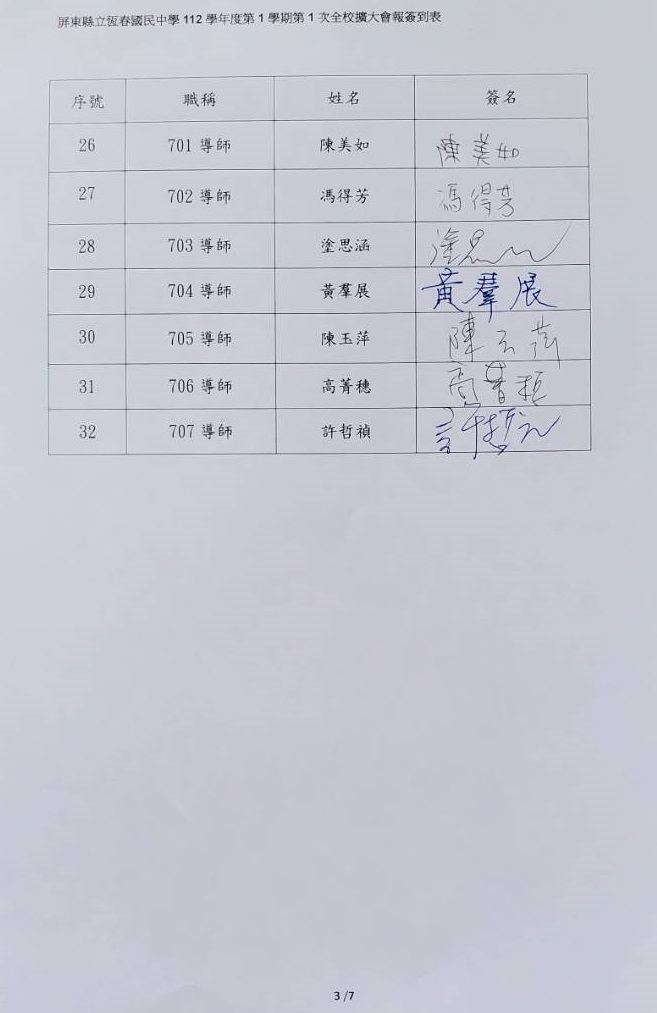 屏東縣立恆春國民中學 112 學年度第 1 學期第 1 次全校擴大會報簽到表
序號 職稱 姓名 簽名
26 701 導師 陳美如 陳美如
27 702 導師 馮得芳 馮得芳
28 703 導師 塗思涵 塗思
29 704 導師 黃羣展 黃羣展
30 705 導師 陳玉萍 陳玉萍
31 706 導師 高菁穗 高菁穗
32 707 導師 許哲禎 許哲
3 /7